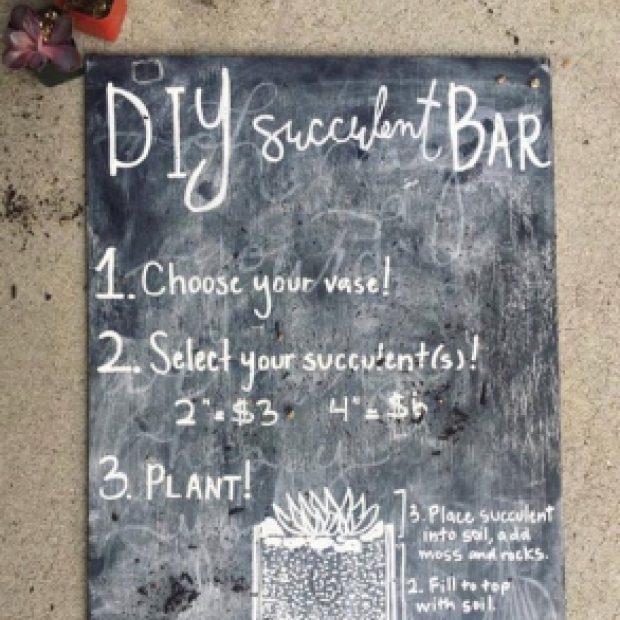 DIY succulent BAR
1. Choose your vase!
2. Select your succulent(s)!
2" = $3 4" =
3. PLANT!
3. Place succulent
into soil, add
moss and rocks.
2. Fill to top
with soil.